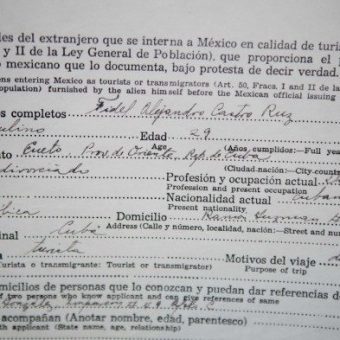 les del extranjero que se interna a México en calidad de turi
y II de la Ley General de Población), que proporciona el p
o mexicano que lo documenta, bajo protesta de decir verdad.
ons entering Mexico as tourists or transmigrators (Art. 50, Fracs. I and II of the
opulation) furnished by the alien himself before the Mexican official issuing
s completos Fidel Alejandro Castro Ruz
culino Edad 29
Age (Años, cumplidos: Full year
nto Cueto Prov. de Oriente Rep. de Cuba
(Ciudad-nación: City-count
divorciado Profesión y ocupación actual
Profession and present occupation
Nacionalidad actual Cuban
Present nationality
Domicilio
Address (Calle y número, localidad, nación: Street and nu
inal Cuba
turista Motivos del viaje
Turista o transmigrante: Tourist or transmigrator) Purpose of trip
micilios de personas que lo conozcan y puedan dar referencias d
of two persons who know applicant and can give references of same
acompañan (Anotar nombre, edad, parentesco)
with applicant (State name, age, relationship)